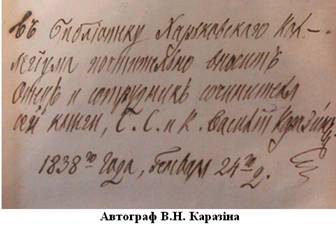 въ Библіотеку Харьковскаго Кол-
легіума почтительно вноситъ
Отецъ и сотрудникъ сочинителя
сей книги, С. С. и К. Василій Каразинъ
1838го года, Генваря 24го д.
Автограф В.Н. Каразіна